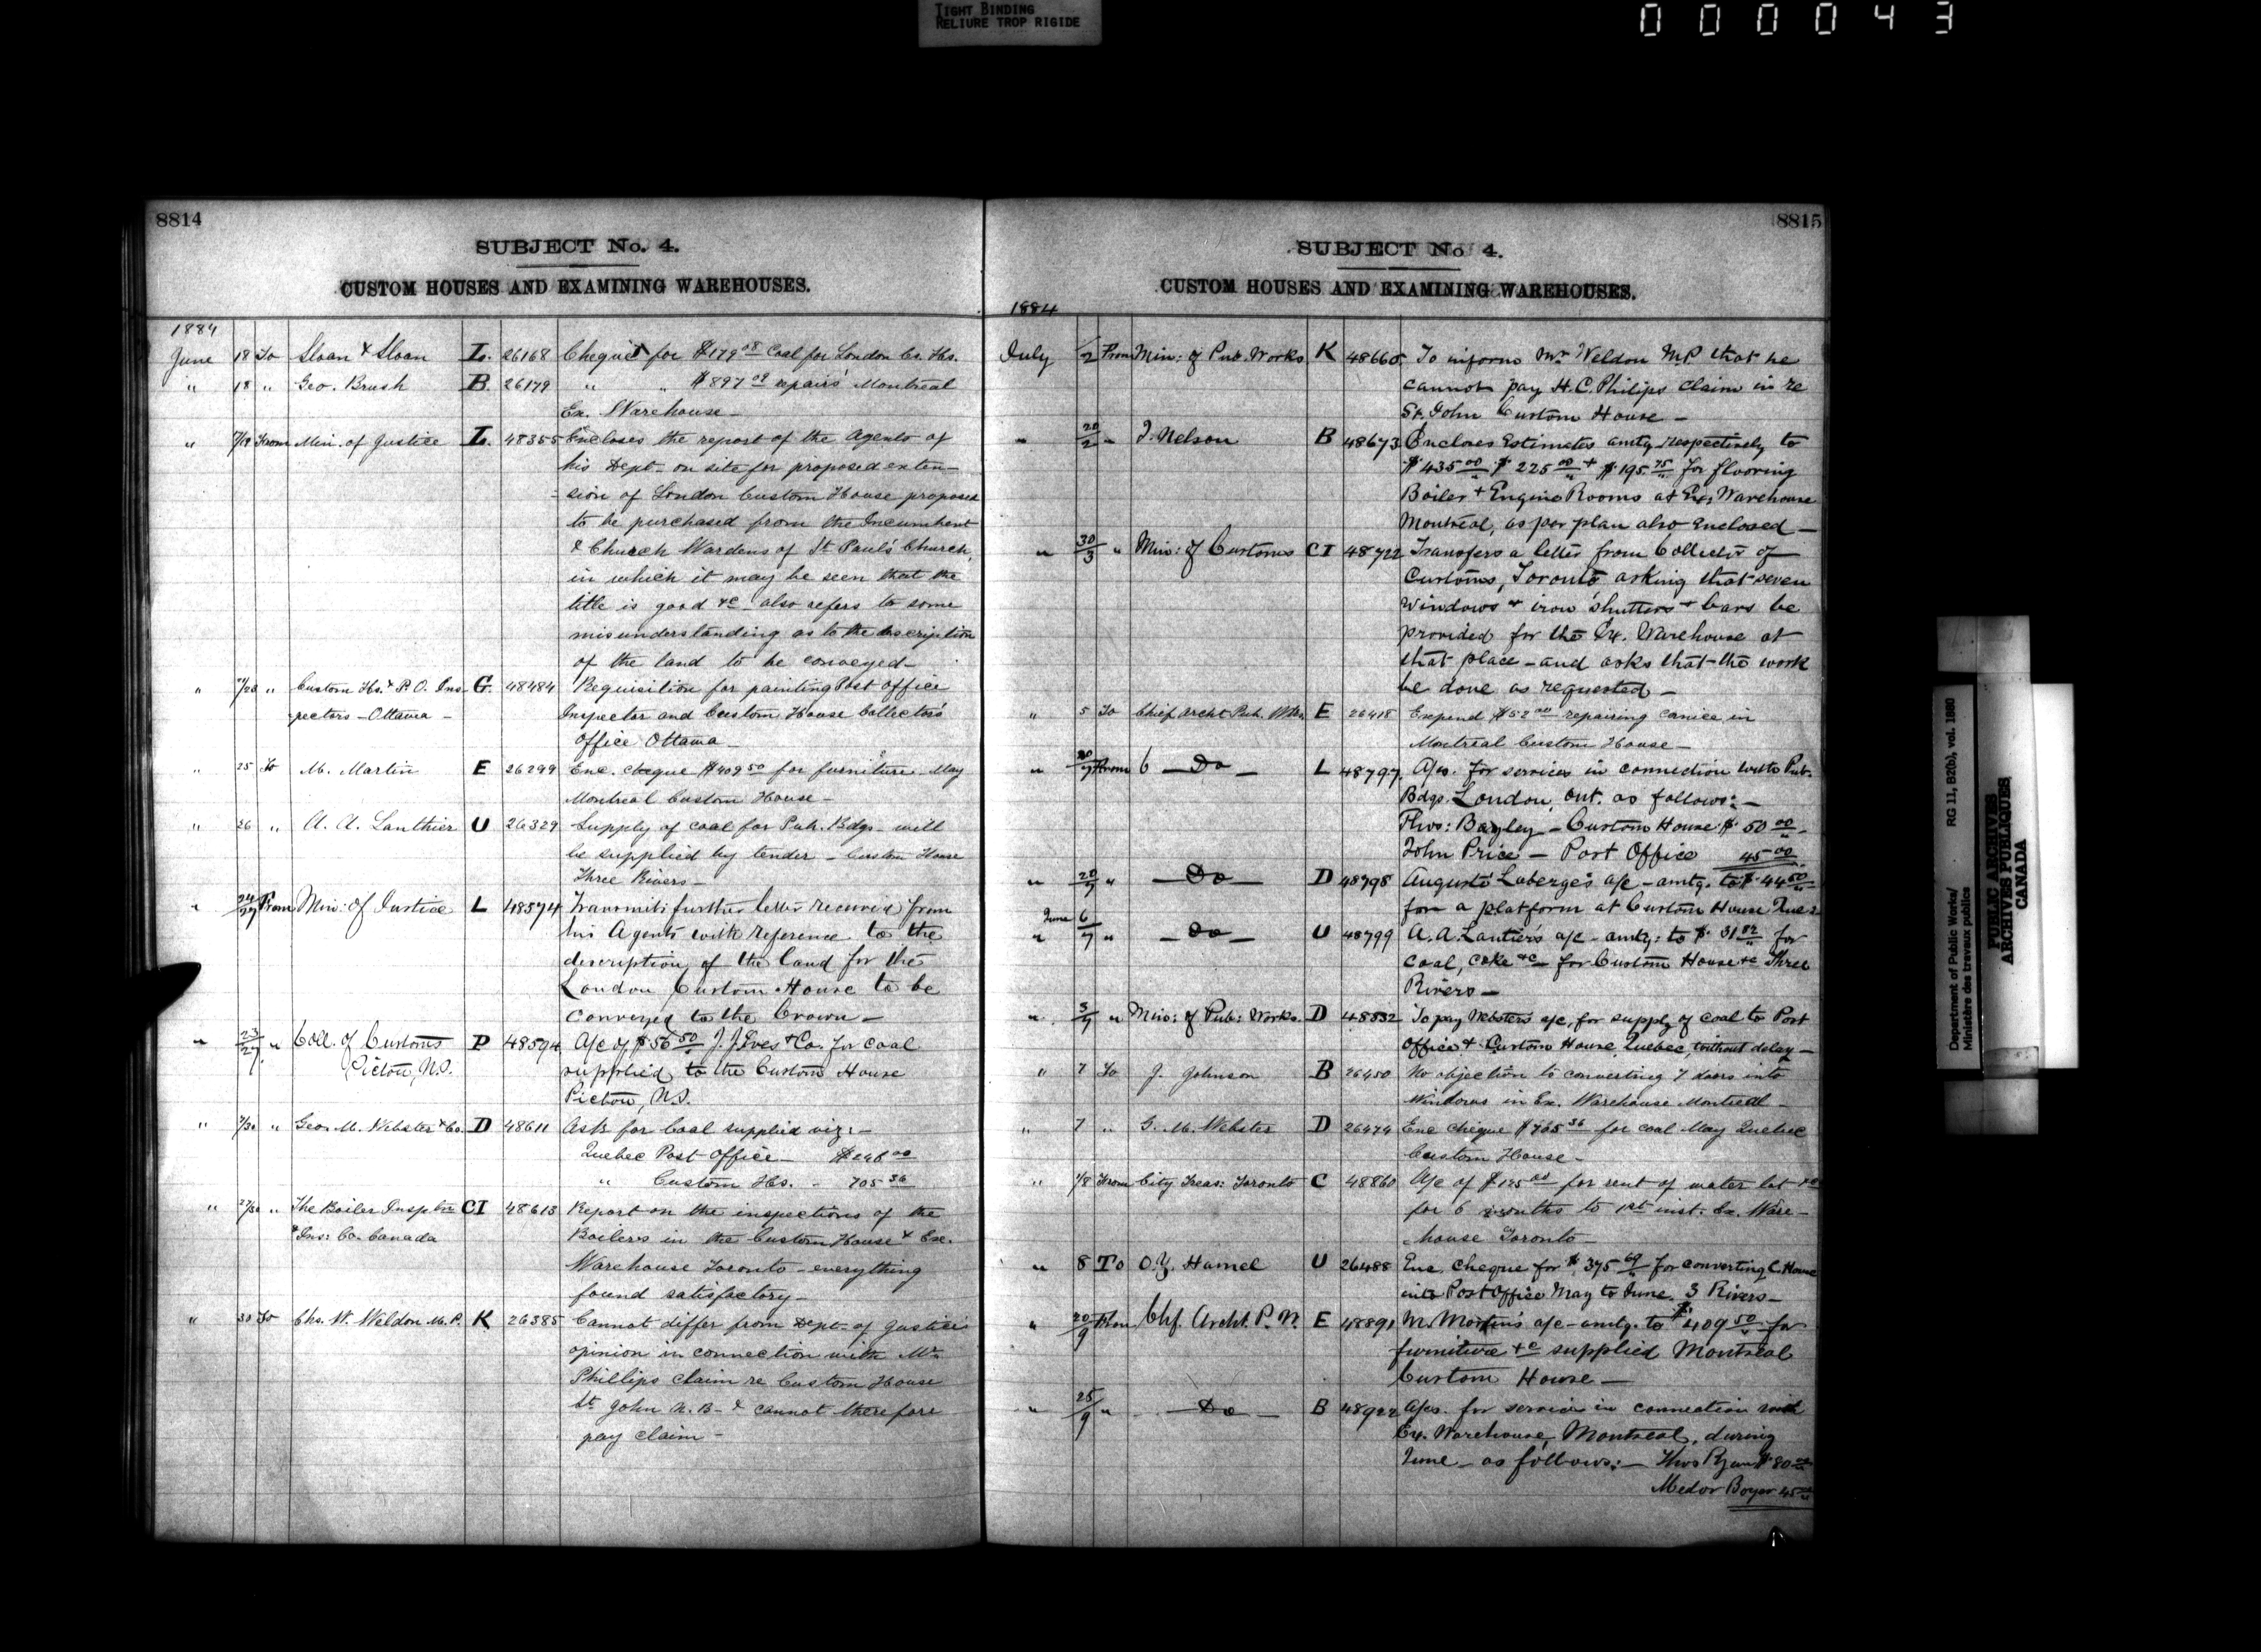 TIGHT BINDING
RELIURE TROP RIGIDE
000043
8814
SUBJECT No. 4.
CUSTOM HOUSES AND EXAMINING WAREHOUSES.
1884
June 18 To Sloan & Sloan L. 26168 Cheque for $179 08 Coal for London Cs. Hs.
" 18 " Geo. Brush B. 26179 " " $897 09 repairs Montreal
Ex. Warehouse —
" 7/18 From Min. of Justice L. 48355 Encloses the report of the Agents of
his Dept. on site for proposed exten-
-sion of London Custom House proposed
to be purchased from the Incumbent
& Church Wardens of St Paul's Church,
in which it may be seen that the
title is good &c — also refers to some
misunderstanding as to the description
of the land to be conveyed —
" /20 " Custom Hs. & P.O. Ins G. 48484 Requisition for painting Post Office
pectors — Ottawa — Inspector and Custom House Collector's
Office Ottawa —
" 25 To M. Martin E 26299 Enc. cheque $409 50 for furniture May
Montreal Custom House —
" 26 " A. A. Lanthier U 26329 Supply of coal for Pub. Bdgs. will
be supplied by tender — Custom House
Three Rivers —
" 24/27 From Min: of Justice L 48574 Transmits further letter received from
his Agents with reference to the
description of the land for the
London Custom House to be
conveyed to the Crown —
" 23/27 " Coll. of Customs P 48594 A/c of $56 50 J. J. Ives & Co. for coal
Pictou, N.S. supplied to the Custom House
Pictou, N.S.
" /30 " Geo. M. Webster & Co. D 48611 Ask for Coal supplied viz: —
Quebec Post Office — $298 00
" Custom Hs. - 705 36
" 27/30 " The Boiler Insptn CI 48613 Report on the inspections of the
& Ins: Co. Canada Boilers in the Custom House & Ex.
Warehouse Toronto — everything
found satisfactory —
" 30 To Chs. W. Weldon M.P. K 26385 Cannot differ from Dept. of Justice's
opinion in connection with Mr.
Phillips claim re Custom House
St John N.B. — & cannot therefore
pay claim —
8815
SUBJECT No 4.
CUSTOM HOUSES AND EXAMINING WAREHOUSES.
1884
July /2 From Min: of Pub. Works K 48660 To inform Mr. Weldon M.P. that he
cannot pay H. C. Philips claim in re
St. John Custom House —
" 20/2 " J. Nelson B 48673 Encloses Estimates amtg. respectively to
$435 00 $225 00 & $195 75 for flooring
Boiler & Engine Rooms at Ex: Warehouse
Montreal, as per plan also enclosed —
" 30/3 " Min: of Customs CI 48722 Transfers a letter from Collector of
Customs, Toronto asking that seven
windows & iron shutters & bars be
provided for the Ex. Warehouse at
that place — and asks that the work
be done as requested —
" 5 To Chief Archt. Pub. Wks E 26418 Expend $52 00 repairing cornice in
Montreal Custom House —
" 30/7 From C — Do — L 48797 A/cs. for services in connection with Pub.
Bdgs. London, Ont. as follows: —
Thos: Bayley — Custom House $50 00
John Price — Post Office 45 00
" 20/7 " — Do — D 48798 Auguste Laberge's a/c — amtg. to $44 50
for a platform at Custom House Quec
June
" 6/7 " — Do — U 48799 A. A. Lantier's a/c — amtg: to $31 82 for
coal, coke &c — for Custom House &c Three
Rivers —
" 5/7 " Min: of Pub: Works. D 48832 To pay Webster's a/c, for supply of coal to Post
Office & Custom House Quebec, without delay —
" 7 To J. Johnson B 26450 No objection to converting 7 doors into
windows in Ex. Warehouse Montreal —
" 7 " G. M. Webster D 26474 Enc cheque $705 36 for coal May Quebec
Custom House —
" 1/8 From City Treas: Toronto C 48860 A/c of $125 00 for rent of water lot &c
for 6 months to 1st inst: Ex. Ware-
house Toronto —
" 8 To O. Z. Hamel U 26488 Enc. cheque for $375 69 for converting C. House
into Post Office May to June. 3 Rivers —
" 20/9 From Chf. Archt. P. W. E 48891 M. Martin's a/c — amtg. to $409 50 for
furniture &c supplied Montreal
Custom House —
" 25/9 " — Do — B 48922 A/cs. for services in connection with
Ex. Warehouse, Montreal, during
June — as follows: — Thos Ryan $80 00
Medor Boyer 45 00
Department of Public Works/ RG 11, B2(b), vol. 1880
Ministère des travaux publics
PUBLIC ARCHIVES
ARCHIVES PUBLIQUES
CANADA